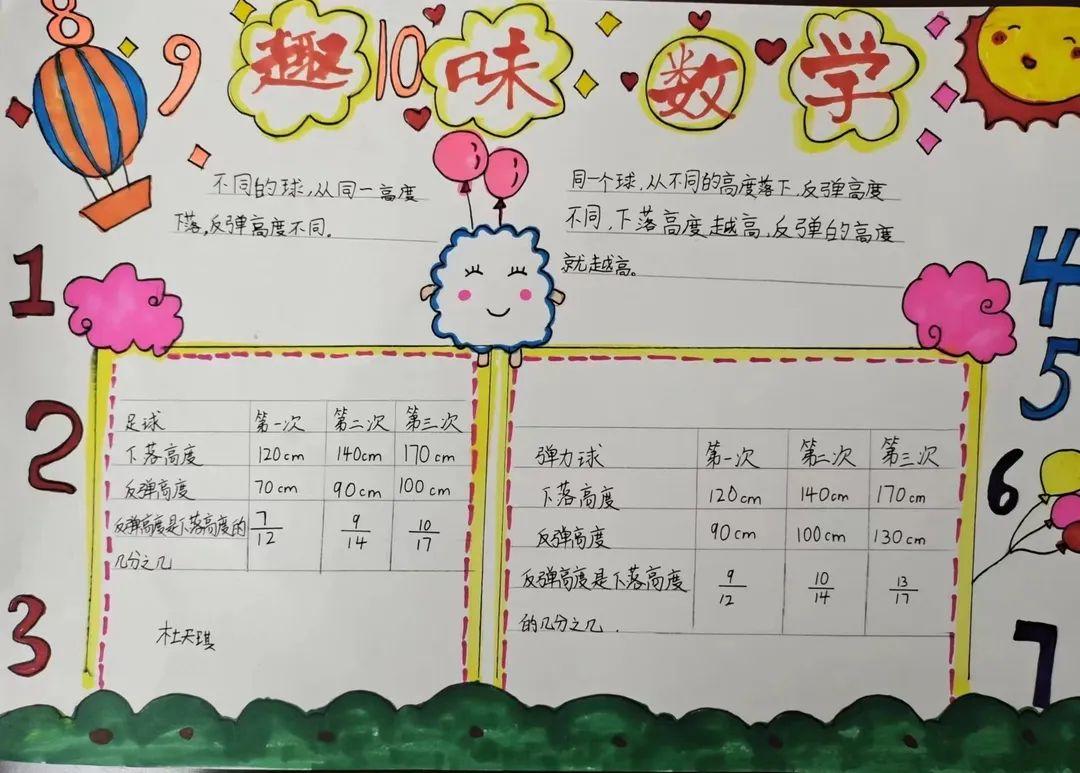 趣味数学
8
9
10
不同的球,从同一高度
下落,反弹高度不同。
同一个球,从不同的高度落下,反弹高度
不同,下落高度越高,反弹的高度
就越高。
1
2
3
足球 第一次 第二次 第三次
下落高度 120cm 140cm 170cm
反弹高度 70cm 90cm 100cm
反弹高度是下落高度的 7/12 9/14 10/17
几分之几
杜天琪
弹力球 第一次 第二次 第三次
下落高度 120cm 140cm 170cm
反弹高度 90cm 100cm 130cm
反弹高度是下落高度 9/12 10/14 13/17
的几分之几.
4
5
6
7